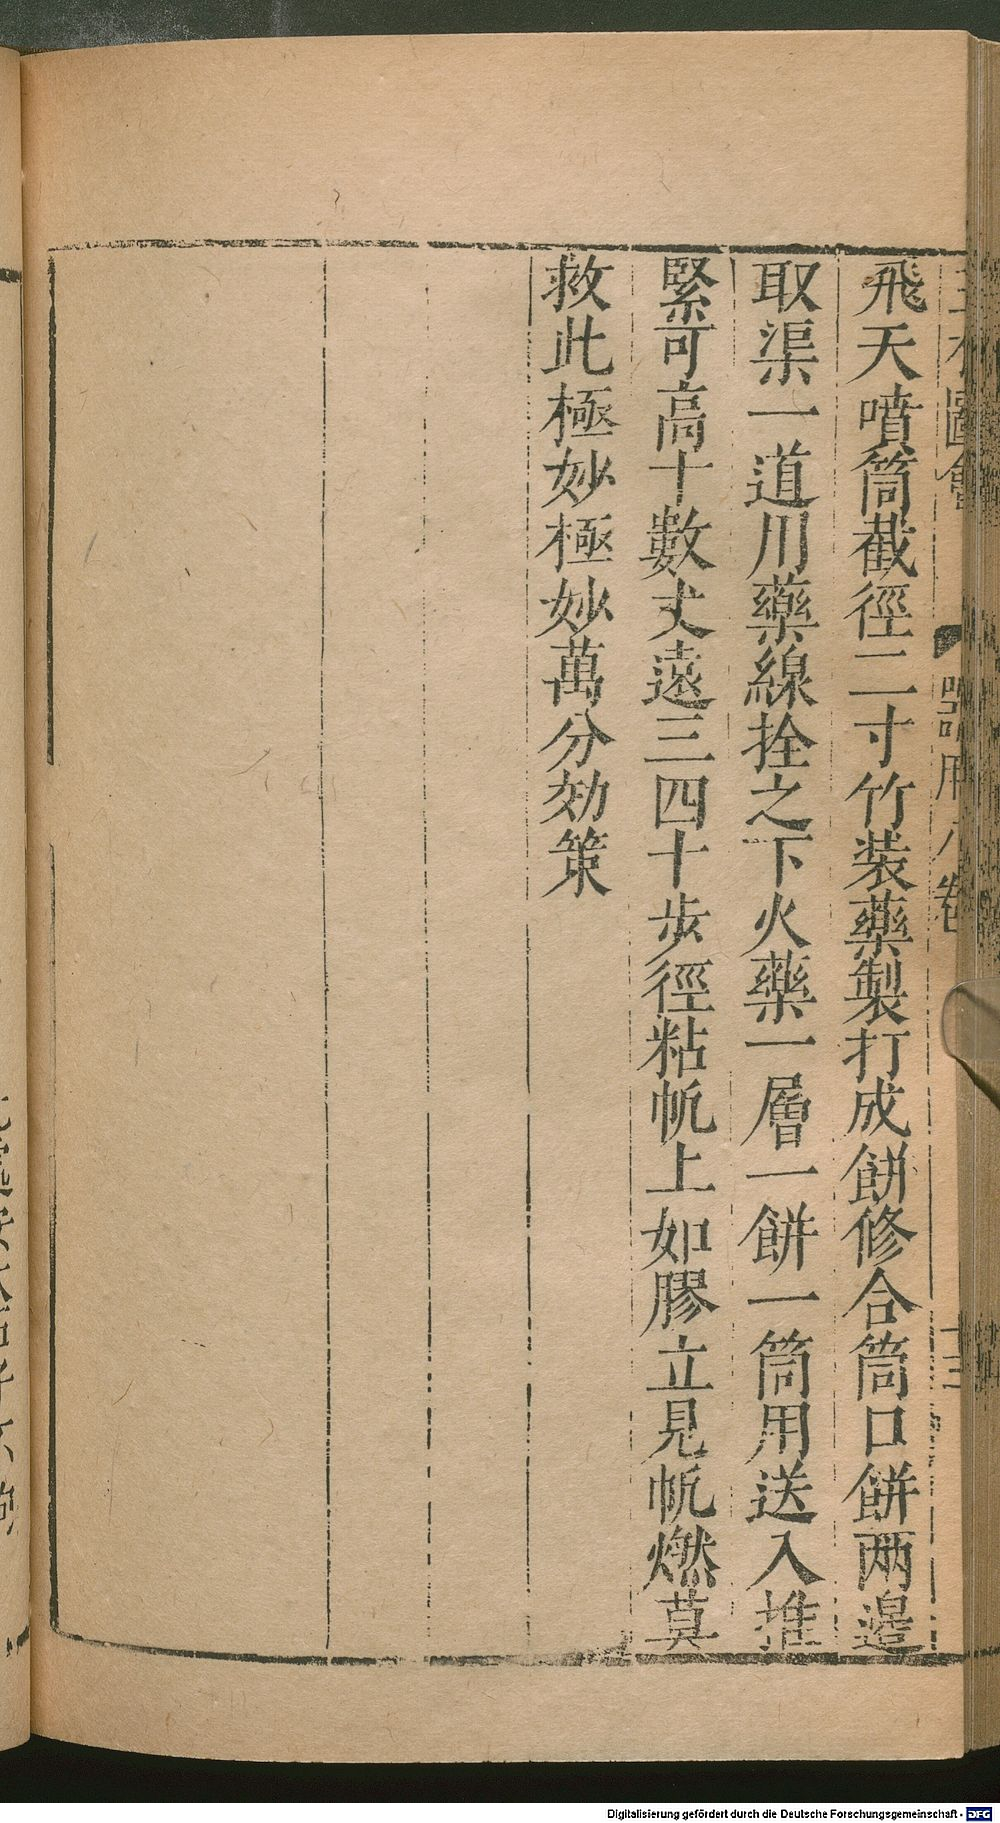 飛天噴筒截徑二寸竹装藥製打成餅修合筒口餅两邉
取渠一道川藥線拴之下火藥一層一餅一筒用送入推
緊可高十數丈遠三四十歩徑粘帆上如膠立見帆燃莫
救此極妙極妙萬分効策
Digitalisierung gefördert durch die Deutsche Forschungsgemeinschaft - DFG